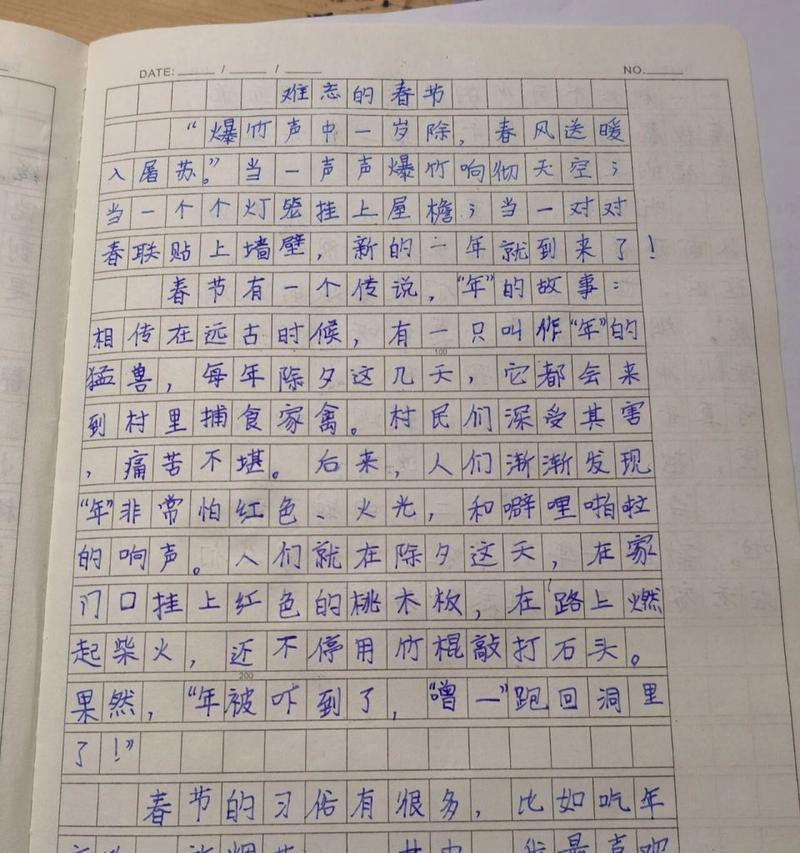 DATE: ____ / ____ / ____ NO. ____
难忘的春节
“爆竹声中一岁除，春风送暖
入屠苏。”当一声声爆竹响彻天空；
当一个个灯笼挂上屋檐；当一对对
春联贴上墙壁，新的一年就到来了！
春节有一个传说，“年”的故事：
相传在远古时候，有一只叫作“年”的
100
猛兽，每年除夕这几天，它都会来
到村里捕食家禽。村民们深受其害
，痛苦不堪。后来，人们渐渐发现
“年”非常怕红色、火光，和噼哩啪啦
的响声。人们就在除夕这天，在家
门口挂上红色的桃木板，在路上燃
起柴火，还不停用竹棍敲打石头。
200
果然，“年被吓到了，“噌一”跑回洞里
了！”
春节的习俗有很多，比如吃年